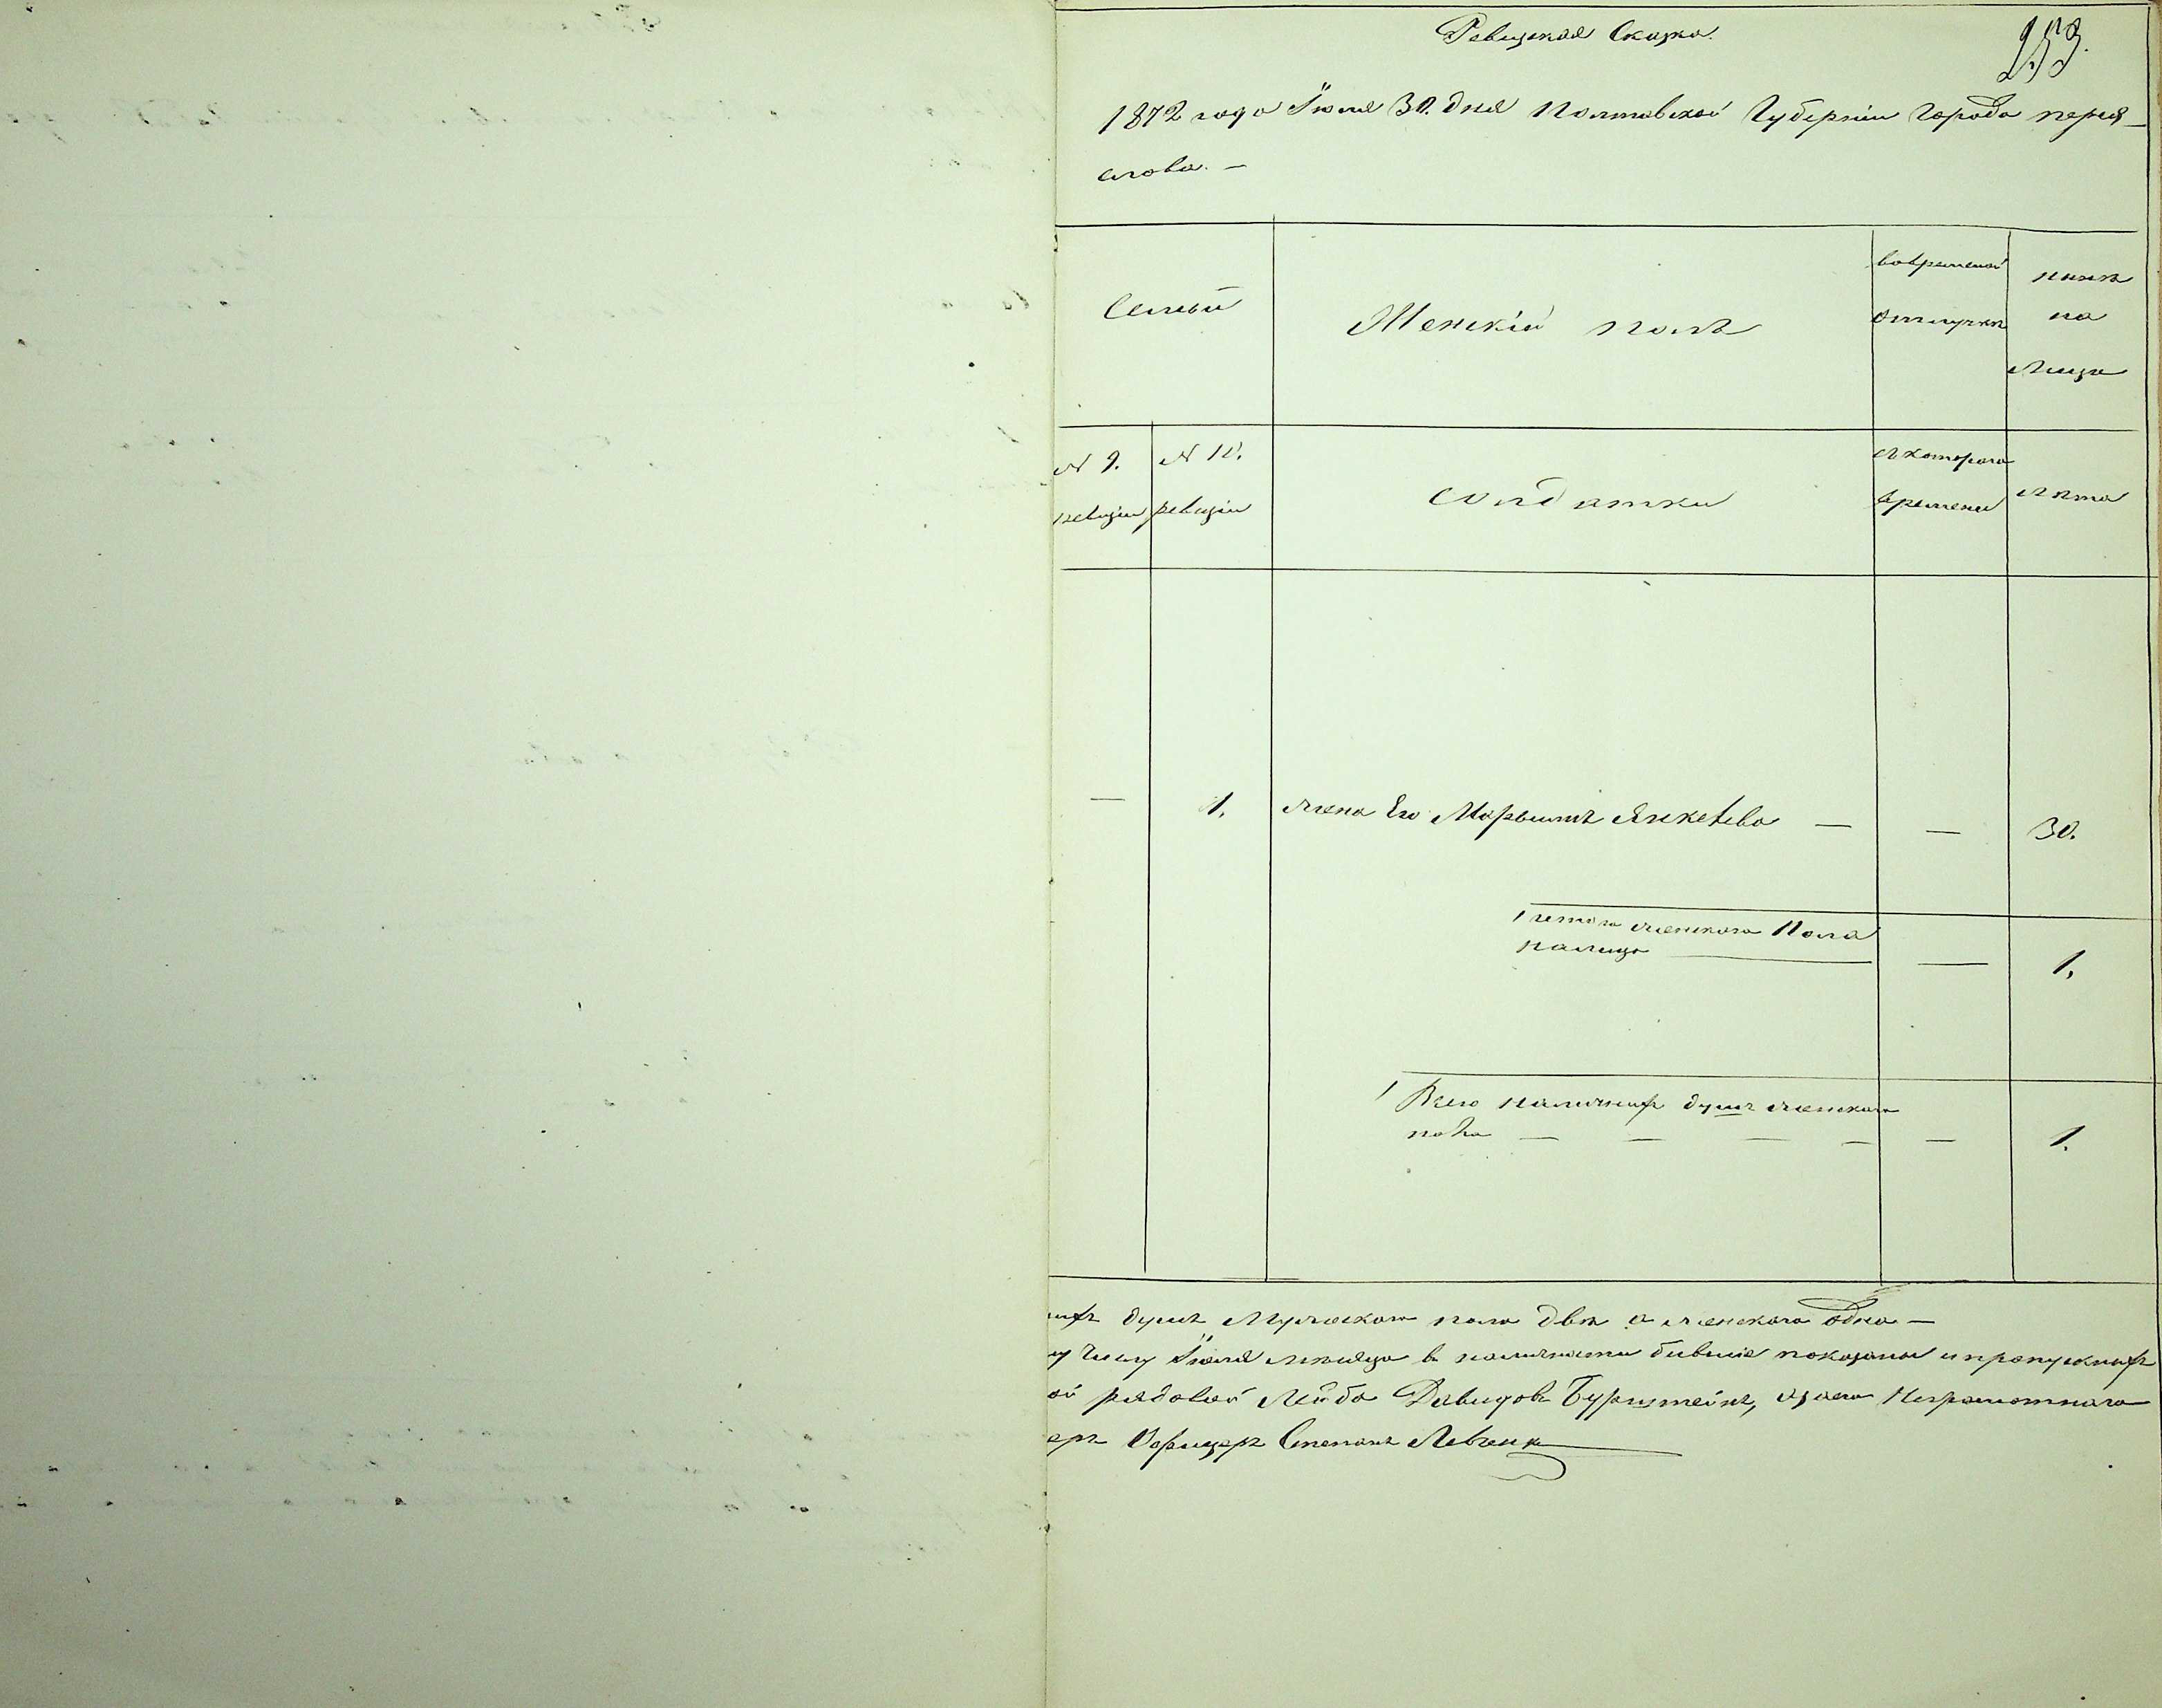 Ревизская Сказка.
253.
1872 года Іюля 30. дня Полтавской Губерніи Города перея-
слова. -
Семьи
Женскій полъ
вовременной
отлучкѣ
нынѣ
на
Лицо
N 9.
ревизіи
N 10.
ревизіи
солдатки
съ котораго
времени
лѣта
—
1.
жена Его Марьимъ Янкелева — — 30.
Итого женскаго Пола
налицо — 1.
Всего наличныхъ душъ женскаго
пола — — — — — 1.
ихъ душъ Мужескаго пола двѣ а женскаго одна —
му числу Іюля мѣсяца в наличности бывшіе показаны и пропускныхъ
ой рядовой Лейба Давидовъ Бурштейнъ, а за его Неграмотнаго
еръ Офицеръ Степанъ Левченк